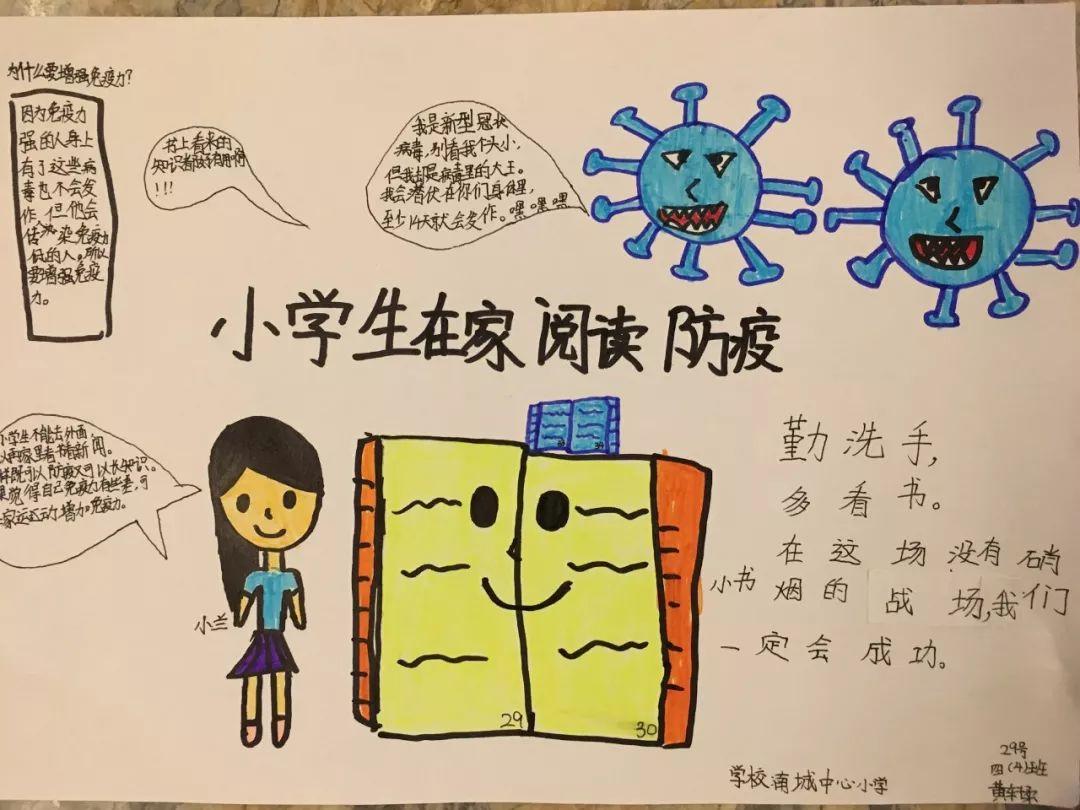 为什么要增强免疫力?
因为免疫力
强的人身上
有了这些病
毒也不会发
作,但他会
传染免疫力
低的人。所以
要增强免疫
力。
书上看来的
知识都好有用啊
!!!
我是新型冠状
病毒,别看我个头小,
但我却是病毒里的大王。
我会潜伏在你们身体里,
至少14天就会发作。嘿嘿嘿
小学生在家阅读防疫
小学生不能去外面
家里看书看新闻。
样既可以防疫又可以长知识。
果觉得自己免疫力有些差,可
家运动增加免疫力。
小兰
29
30
小书
勤洗手,
多看书。
在这场没有硝
烟的战场,我们
一定会成功。
学校南城中心小学
29号
四(4)班
黄